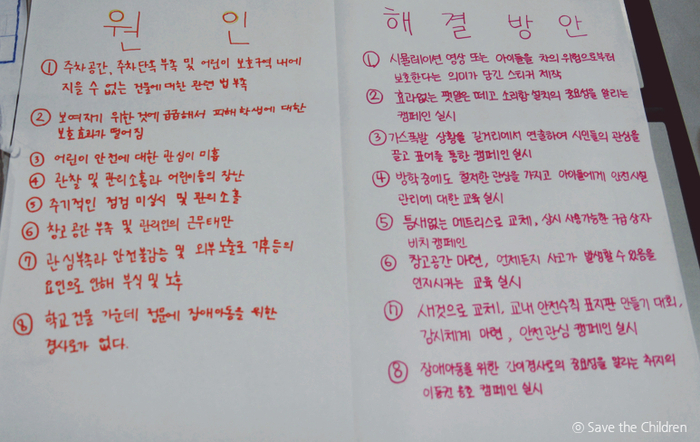 원 인
① 주차공간, 주차단속 부족 및 어린이 보호구역 내에
지을 수 없는 건물에 대한 관련 법 부족
② 보여주기 위한 것에 급급해서 피해학생에 대한
보호 효과가 떨어짐
③ 어린이 안전에 대한 관심이 미흡
④ 관찰 및 관리소홀과 어린이들의 장난
⑤ 주기적인 점검 미실시 및 관리소홀
⑥ 창고 공간 부족 및 관리인의 근무태만
⑦ 관심부족과 안전불감증 및 외부노출로 기후등의
요인으로 인해 부식 및 노후
⑧ 학교 건물 가운데 정문에 장애아동을 위한
경사로가 없다.
해 결 방 안
① 시뮬레이션 영상 또는 아이들을 차의 위험으로부터
보호한다는 의미가 담긴 스티커 제작
② 효과없는 팻말은 떼고 소리함 설치의 중요성을 알리는
캠페인 실시
③ 가스폭발 상황을 길거리에서 연출하여 시민들의 관심을
끌고 표어를 통한 캠페인 실시
④ 방학 중에도 철저한 관심을 가지고 아이들에게 안전시설
관리에 대한 교육 실시
⑤ 틈새없는 메트리스로 교체, 상시 사용가능한 구급 상자
비치 캠페인
⑥ 창고공간 마련, 언제든지 사고가 발생할 수 있음을
인지시키는 교육 실시
⑦ 새것으로 교체, 교내 안전수칙 표지판 만들기 대회,
감시체계 마련, 안전관심 캠페인 실시
⑧ 장애아동을 위한 간이경사로의 중요성을 알리는 취지의
이동권 옹호 캠페인 실시
ⓒ Save the Children